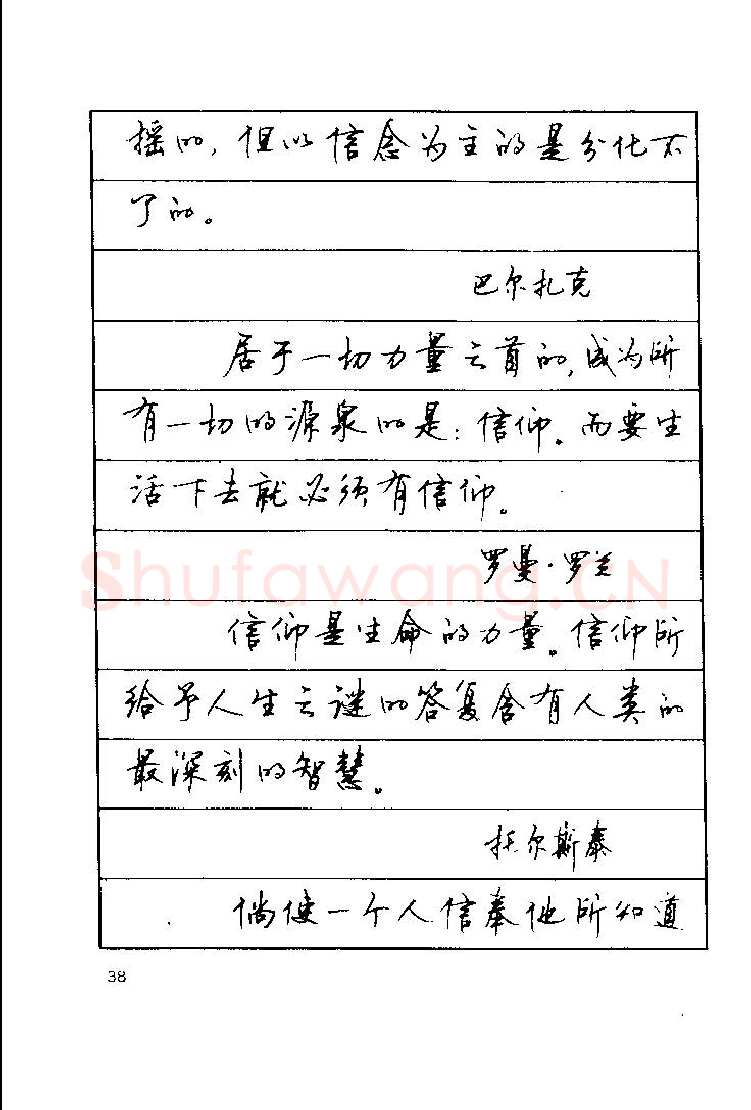 摇的，但以信念为主的是分化不
了的。
巴尔扎克
居于一切力量之首的，成为所
有一切的源泉的是：信仰。而要生
活下去就必须有信仰。
罗曼·罗兰
Shufawang.CN
信仰是生命的力量。信仰所
给予人生之谜的答复含有人类的
最深刻的智慧。
托尔斯泰
倘使一个人信奉他所知道
38